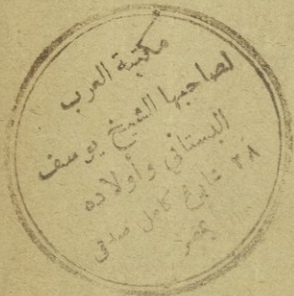 مكتبة العرب
لصاحبها الشيخ يوسف
البستاني وأولاده
٢٨ شارع كامل صدقي
بمصر